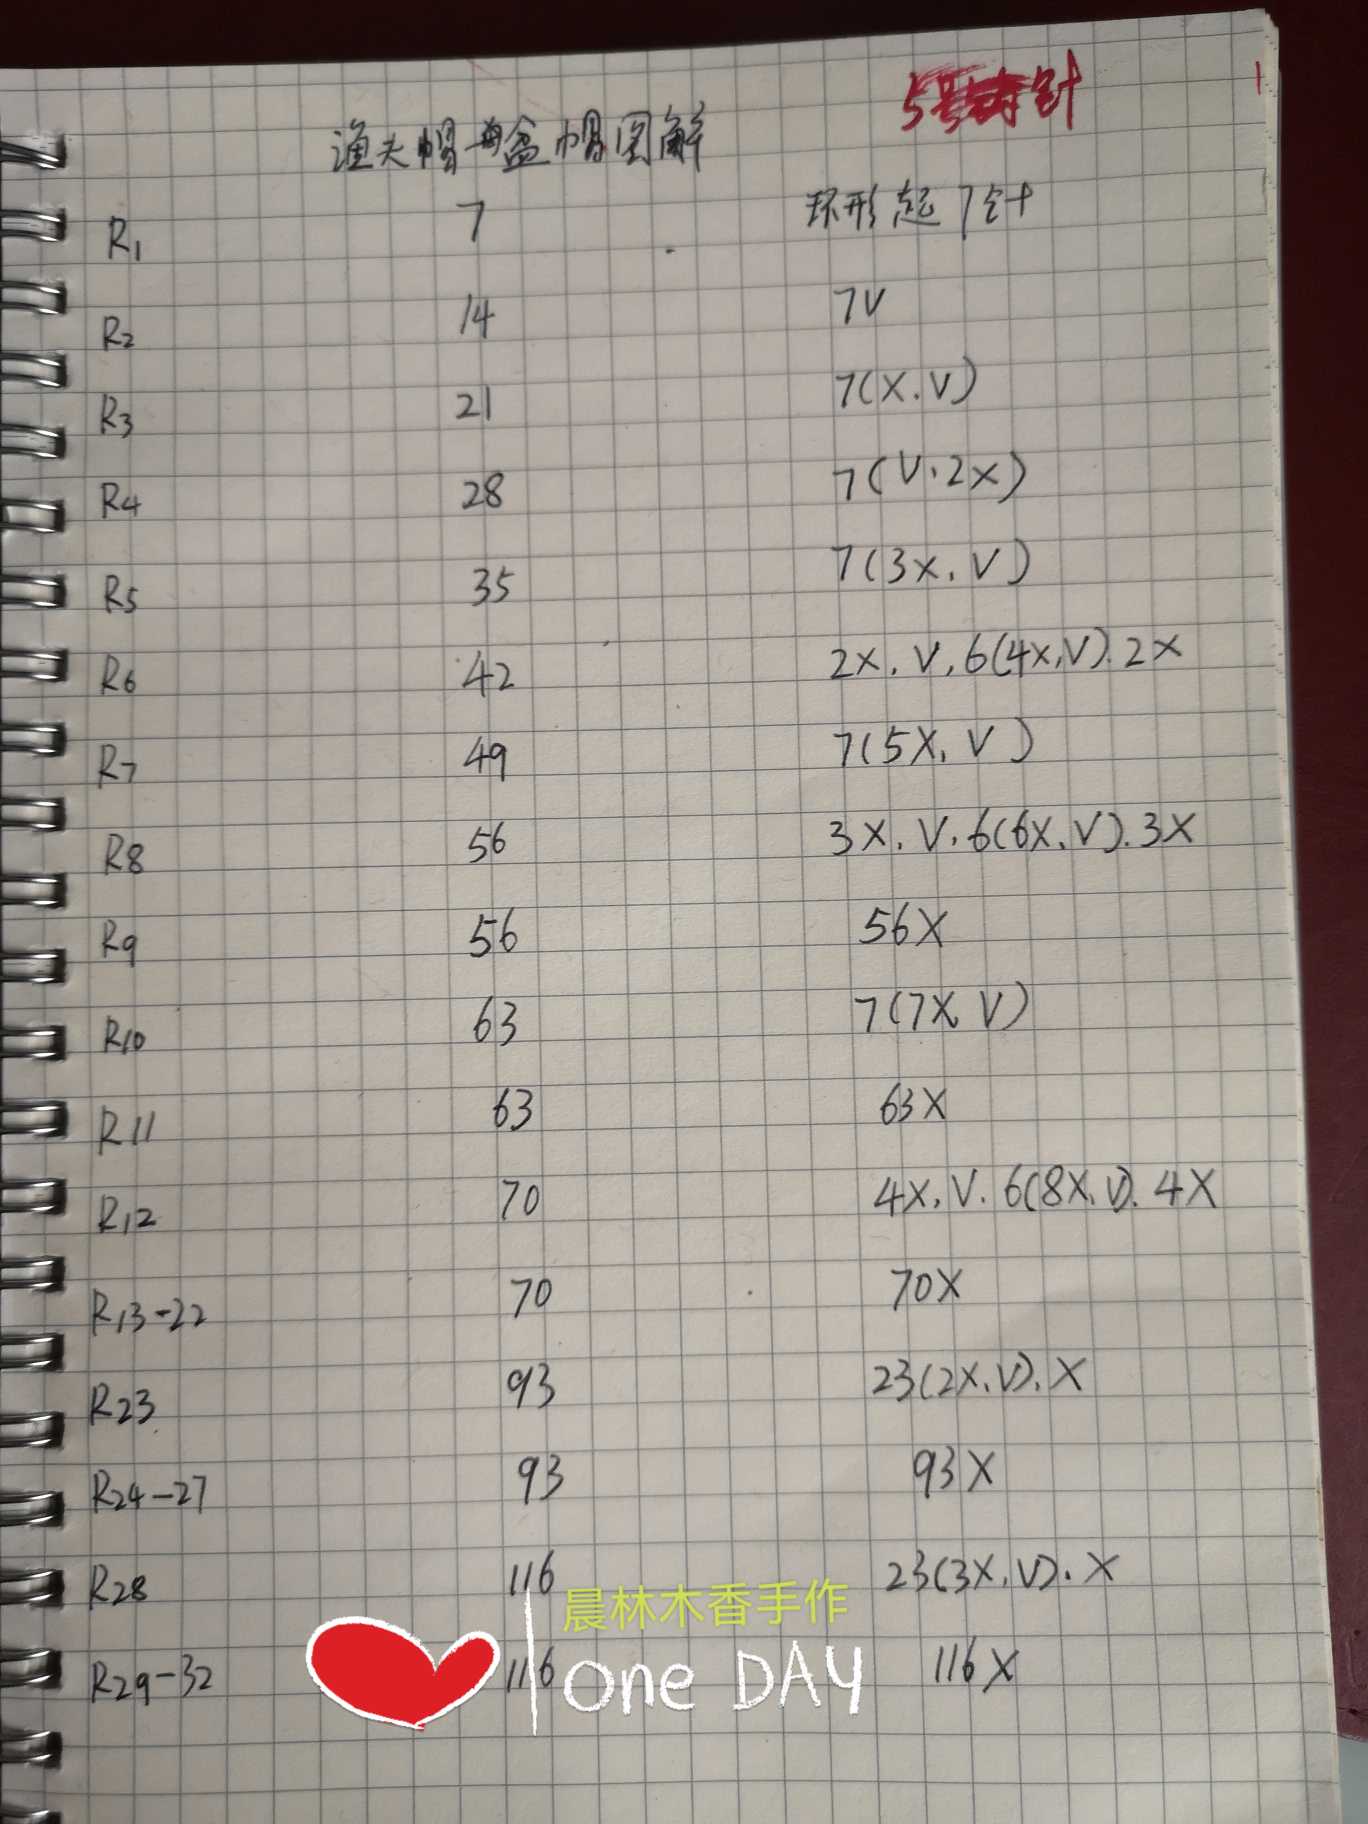 5号钩针
渔夫帽 盆帽图解
R1 7 环形起7针
R2 14 7V
R3 21 7(X.V)
R4 28 7(V.2X)
R5 35 7(3X.V)
R6 42 2X.V.6(4X.V).2X
R7 49 7(5X.V)
R8 56 3X.V.6(6X.V).3X
R9 56 56X
R10 63 7(7X V)
R11 63 63X
R12 70 4X.V.6(8X.V).4X
R13-22 70 70X
R23 93 23(2X.V).X
R24-27 93 93X
R28 116 23(3X.V).X
晨林木香手作
R29-32 116 116X
One DAY